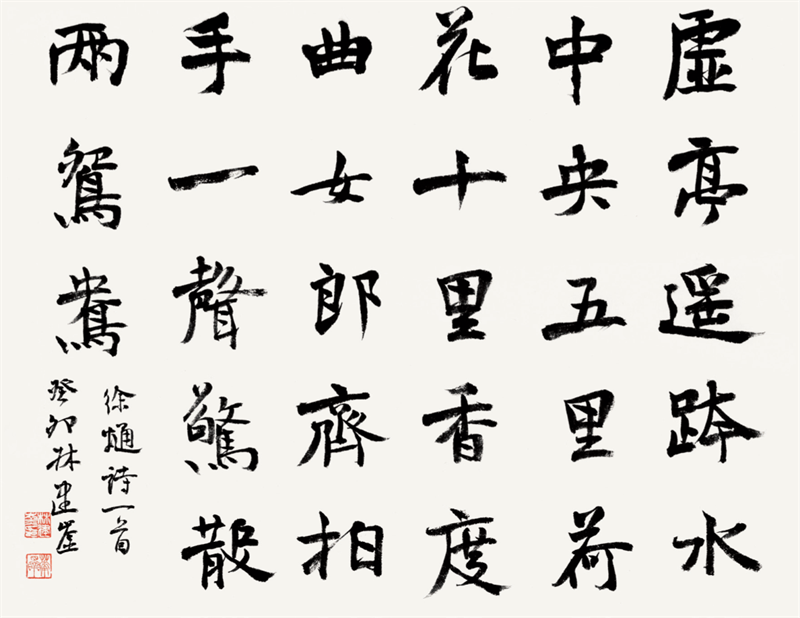 虛亭遥跨水
中央五里荷
花十里香度
曲女郎齊拍
手一聲驚散
兩鴛鴦
徐𤊹詩一首
癸卯林建崖